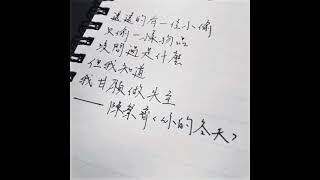 遠遠的有一位小偷
只偷一樣物品
沒問過是什麼
但我知道
我甘願做失主
——陳繁齊〈小的冬天〉